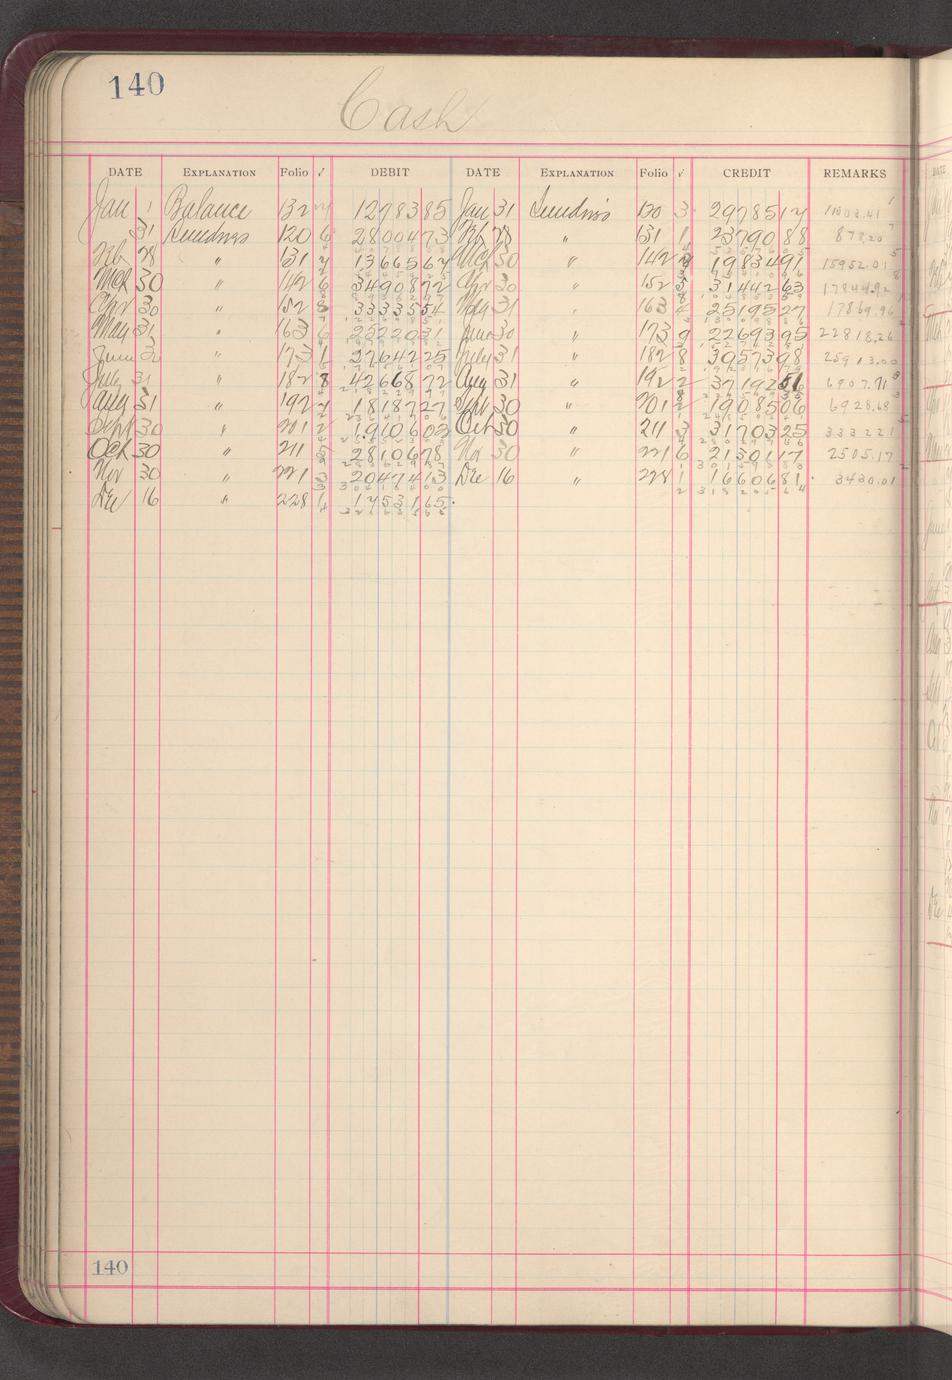 140
Cash
DATE EXPLANATION Folio ✓ DEBIT DATE EXPLANATION Folio ✓ CREDIT REMARKS
Jan 1 Balance 132 12783 85 Jan 31 Sundries 130 3 29785 17 11003.41
31 Sundries 120 6 28004 73 Feb 28 " 131 1 23790 88 878.20
Feb 28 " 131 7 13665 67 Mch 30 " 142 19834 91 15952.01
Mch 30 " 142 6 34908 72 Apr 30 " 152 5 31442 63 17844.92
Apr 30 " 152 8 33335 54 May 31 " 163 4 25195 27 17869.96
May 31 " 163 6 25220 31 June 30 " 173 9 22693 95 22818.26
June 30 " 173 1 27642 25 July 31 " 182 8 39573 98 25913.00
July 31 " 182 8 42668 72 Aug 31 " 192 2 37192 56 6907.71
Aug 31 " 192 7 18187 27 Sept 30 " 201 2 19085 06 6928.68
Sept 30 " 201 2 19106 03 Oct 30 " 211 3 31703 25 3332 21
Oct 30 " 211 5 28106 78 Nov 30 " 221 6 21301 17 2505.17
Nov 30 " 221 3 20474 13 Dec 16 " 228 1 16606 81 3430.01
Dec 16 " 228 1 17531 65
140